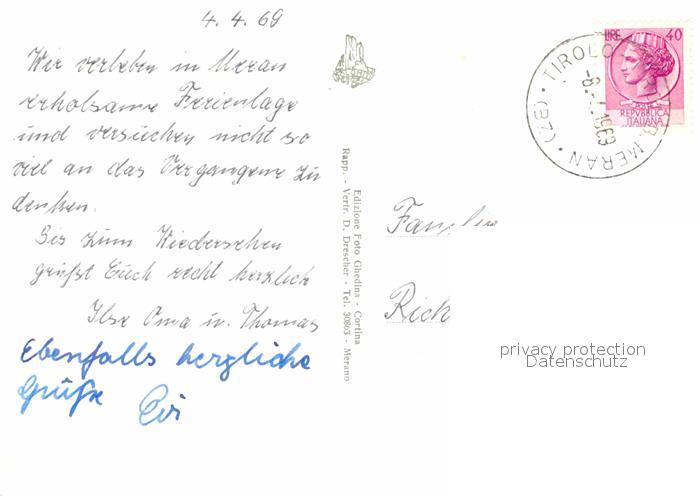 4. 4. 69
Wir verleben in Meran
erholsame Ferientage
und versuchen nicht so
viel an das Vergangene zu
denken.
Bis zum Wiedersehen
grüßt Euch recht herzlich
Ilse Oma u. Thomas
Ebenfalls herzliche
Grüße Evi
Edizione Foto Ghedina - Cortina
Rapp. - Vertr. D. Drescher - Tel. 30803 - Merano
LIRE 40
POSTE
REPVBBLICA
ITALIANA
TIROLO
MERAN
(BZ)
1969
Familie
Rich
privacy protection
Datenschutz